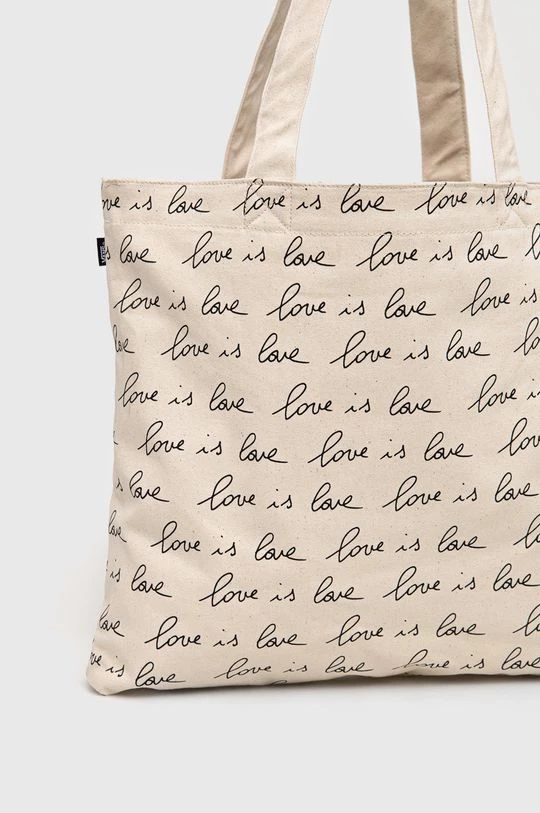 ve is love love is love love is love
s love love is love love is love
love is love love is love love is
love love is love love is love lo
love is love love is love love is
love is love love is love lov
is love love is love love is love
love love is love love is love
is love love is love love is love
love love is love love is love l
ve is love love is love love is love